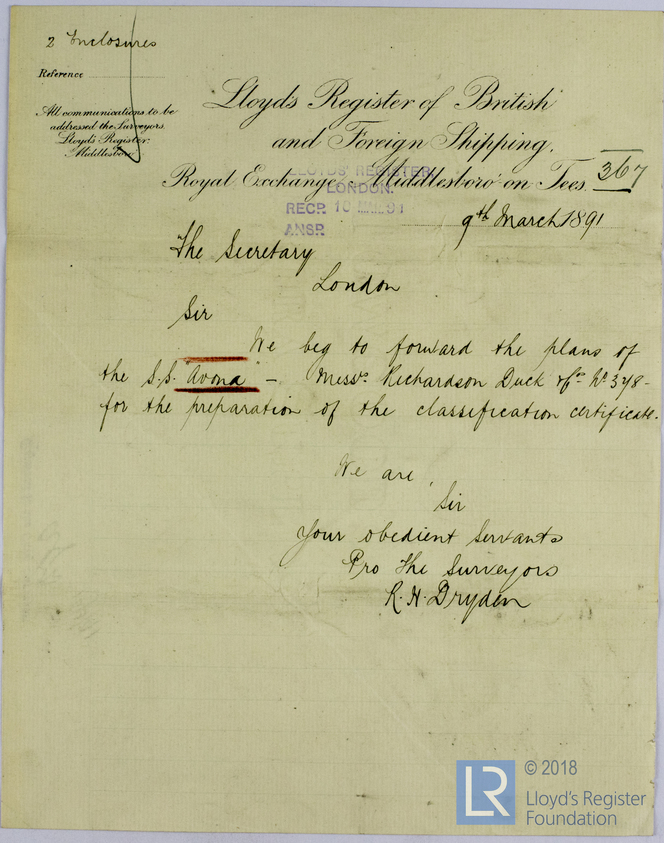 2 Enclosures
Reference
All communications to be
addressed the Surveyors.
Lloyd's Register.
Middlesboro'
Lloyd's Register of British
and Foreign Shipping,
Royal Exchange, Middlesboro'-on-Tees.
367
LLOYDS' REGISTER,
LONDON.
RECD. 10 91
ANSR.
9th March 1891
The Secretary
London
Sir
We beg to forward the plans of
the S.S. Avona – Messrs Richardson Duck No 378-
for the preparation of the classification certificate.
We are,
Sir
Your obedient Servants
Pro The Surveyors
R. H. Dryden
LR
© 2018
Lloyd's Register
Foundation